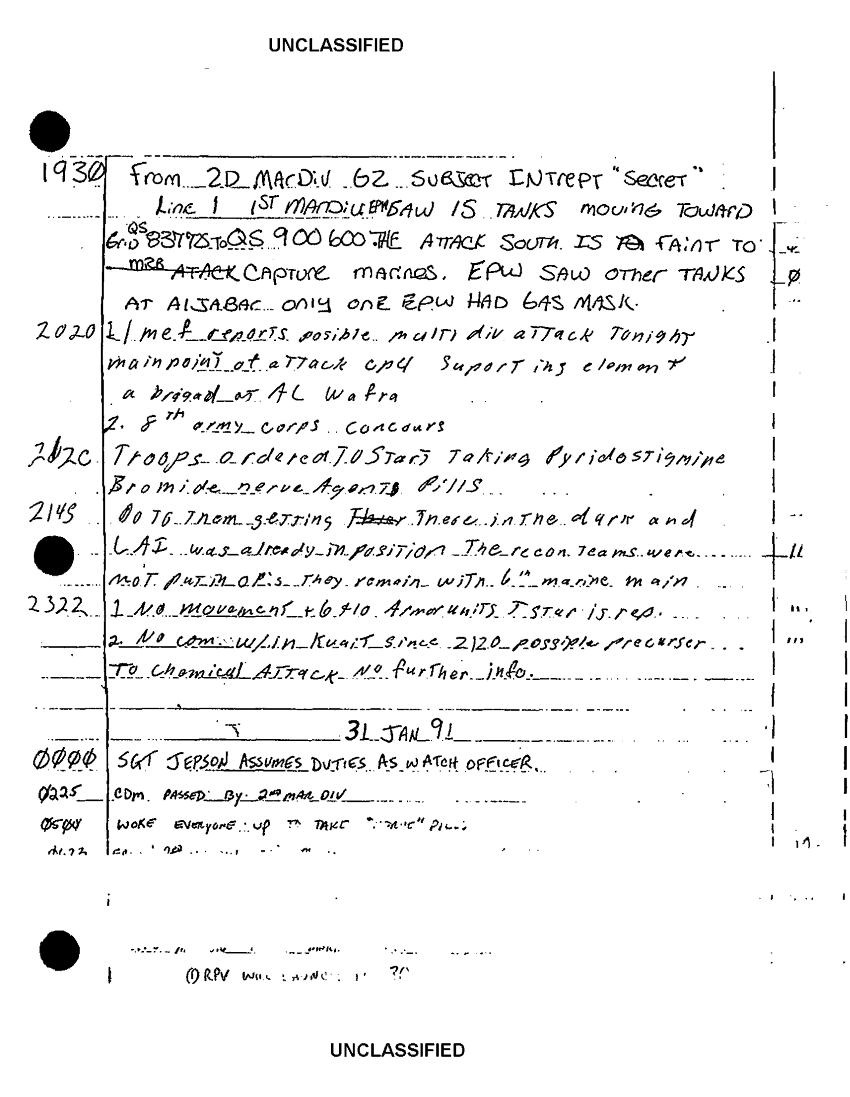 UNCLASSIFIED
1930 From 2D MarDiv G2 SUBJECT INTrepT "Secret"
Line 1 1ST MARDIV EPW SAW 15 TANKS MOVING TOWARD
GriD QS 837775 To QS 900 600. THE ATTACK SOUTH IS FAINT TO
CAPTURE MARINES. EPW SAW OTHER TANKS
AT AlJABAC ONLY ONE EPW HAD GAS MASK.
2020 1/ mef reports posible multi div attack Tonight
main point of attack Suporting element
a brigad at AL Wafra
2. 8th army corps Concours
Troops ordered TO STarT Taking Pyridostigmine
Bromide nerve Agents Pills
2145 getting There in The dark and
LAI was already in position The recon Teams were
noT put in O.P.'s They remain with 6th marine main
2322 1 No movement Armor units J star is rep.
2. No com w/in Kuait since 2120 possible precurser
To Chemical ATTack No further info.
31 JAN 91
0000 SGT JEPSON ASSUMES DUTIES AS WATCH OFFICER.
0225 COM. PASSED BY 2ND MAR DIV
0504 WOKE EVERYONE UP TO TAKE
(1) RPV
UNCLASSIFIED